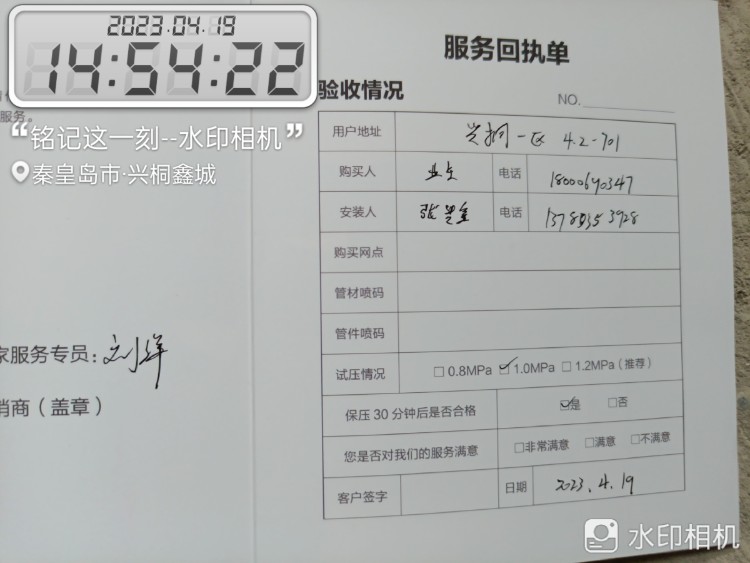 2023.04.19
14:54:22
“铭记这一刻--水印相机”
秦皇岛市·兴桐鑫城
服务。
家服务专员：刘洋
销商（盖章）
服务回执单
验收情况
NO.
用户地址 兴桐一区 4.2-701
购买人 业主 电话 18000640347
安装人 张 电话
购买网点
管材喷码
管件喷码
试压情况 □ 0.8MPa ☑ 1.0MPa □ 1.2MPa（推荐）
保压 30 分钟后是否合格 ☑是 □否
您是否对我们的服务满意 □非常满意 □满意 □不满意
客户签字 日期 2023.4.19
水印相机